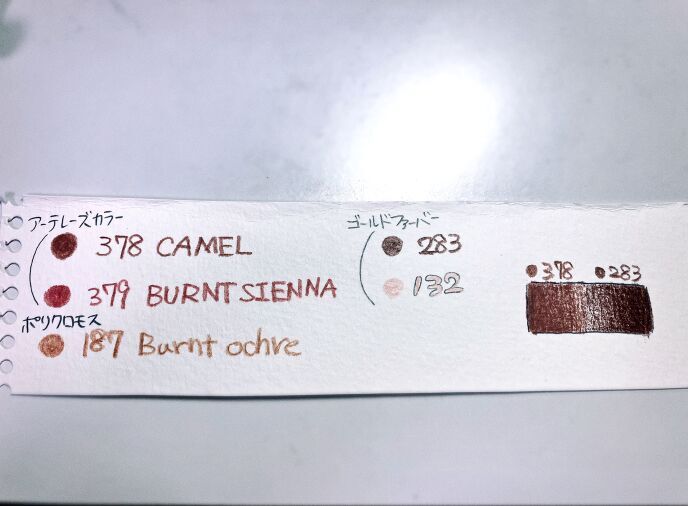 アーテレーズカラー
378 CAMEL
379 BURNT SIENNA
ポリクロモス
187 Burnt ochre
ゴールドファーバー
283
132
378 283